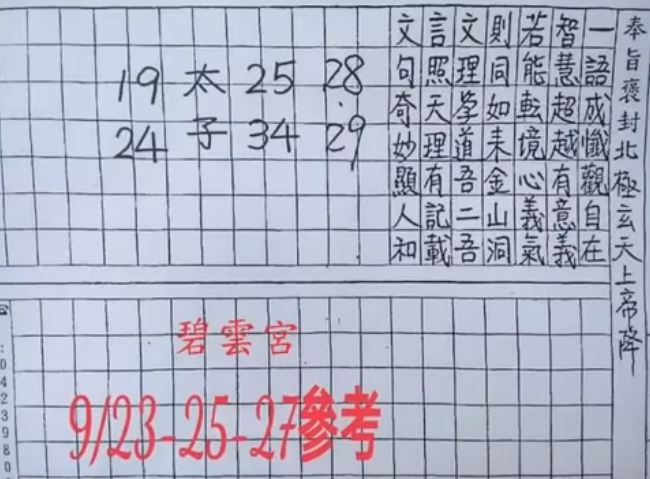 奉旨褒封北極玄天上帝降
一語成懺觀自在
智慧超越有意義
若能転境心義氣
則同如來金山洞
文理学道吾二吾
言照天理有記載
文句奇妙顯人和
28 29
25 34
太子
19 24
碧雲宮
9/23-25-27參考
:0423980